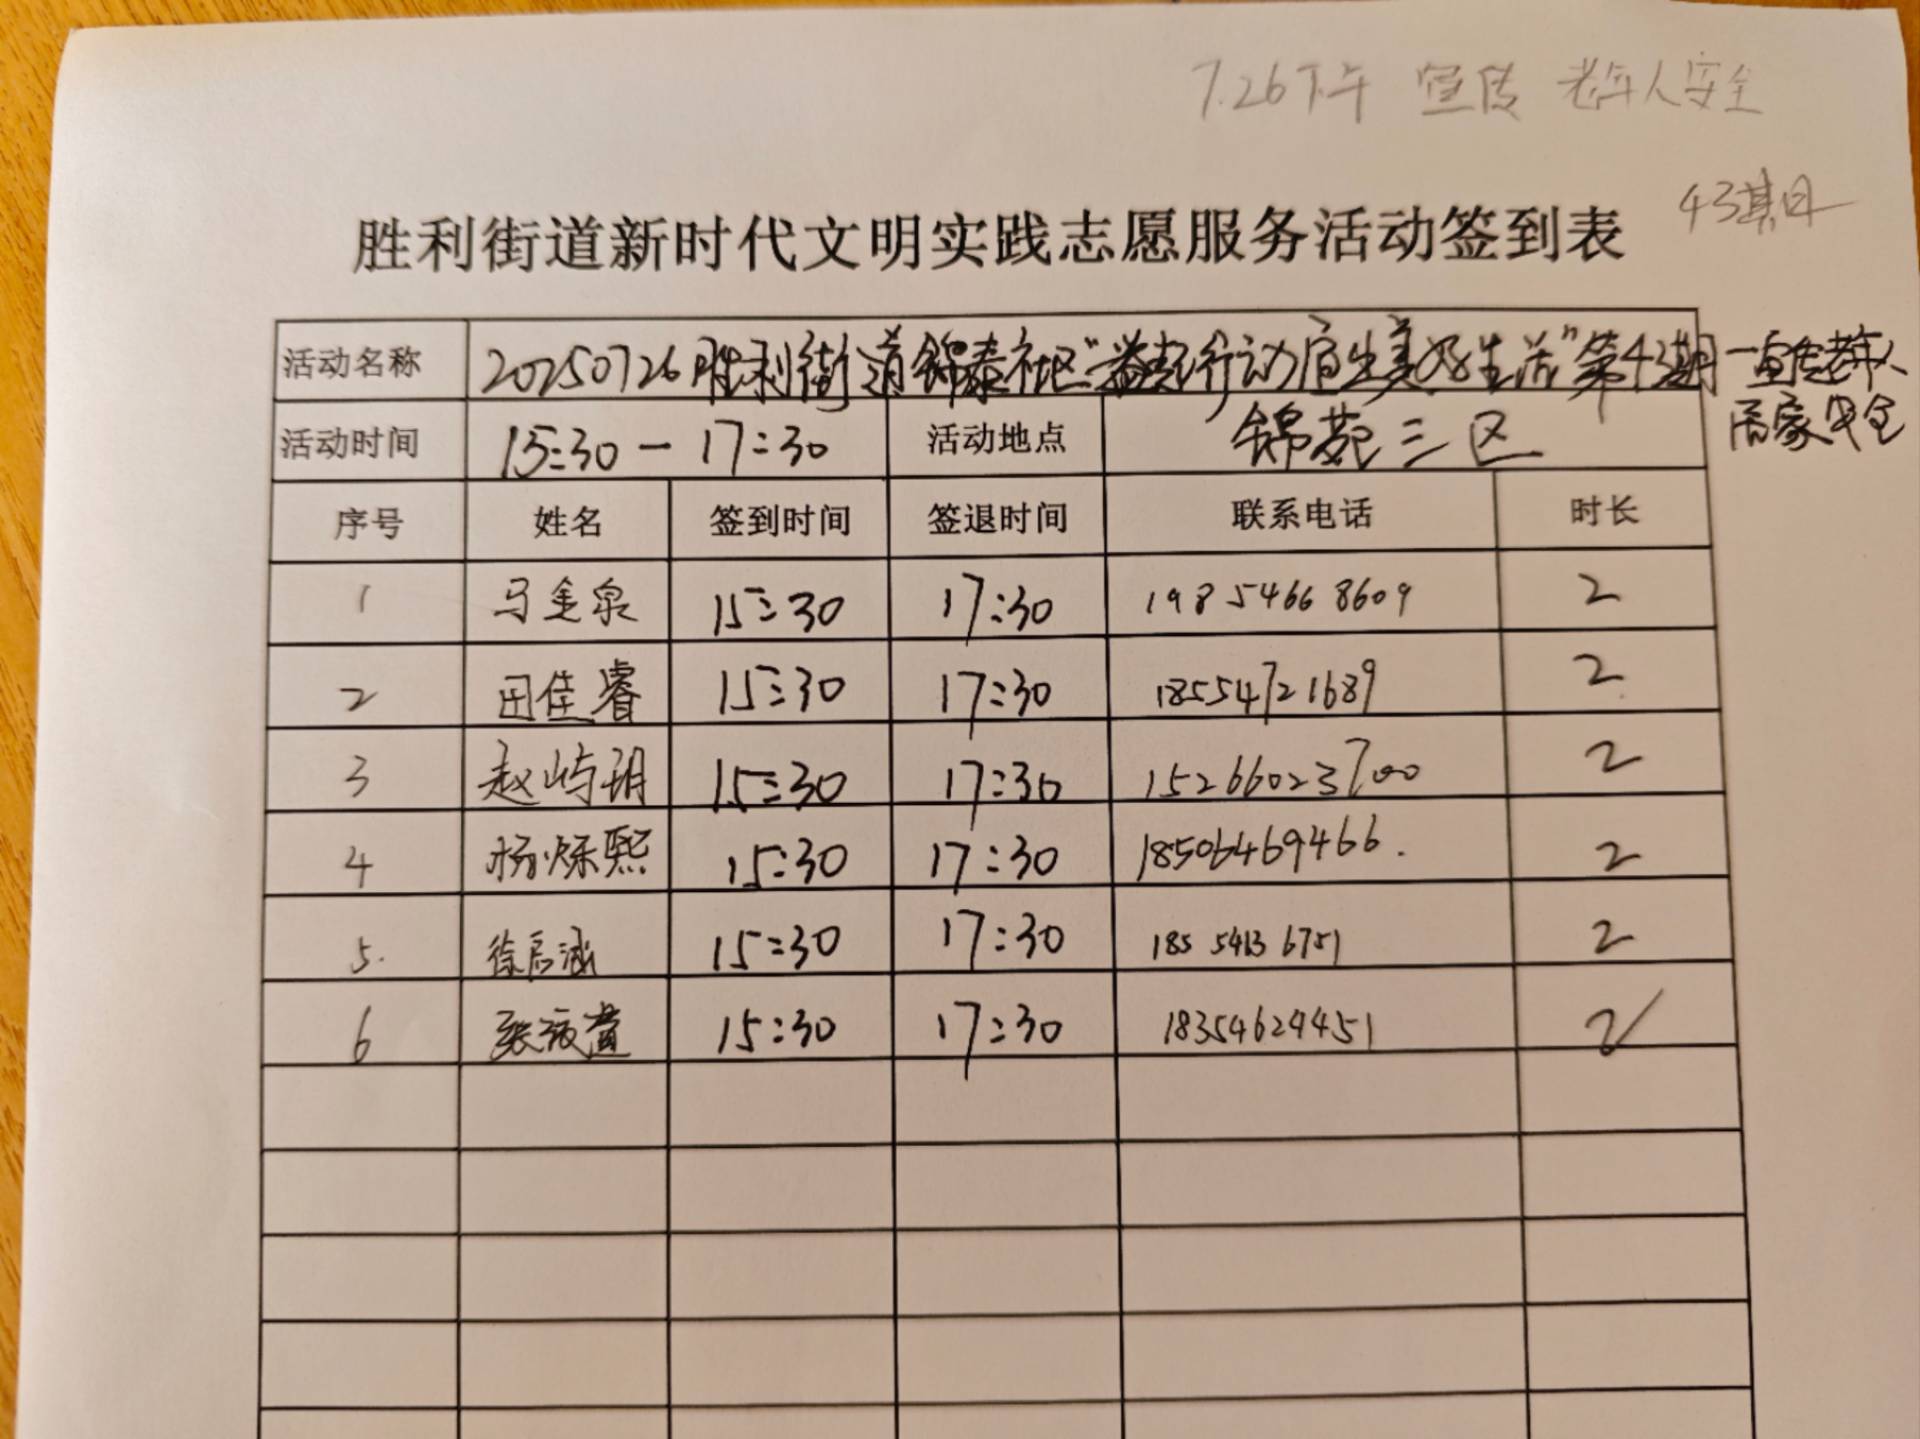 7.26下午 宣传 老年人安全
43期
胜利街道新时代文明实践志愿服务活动签到表
活动名称 20250726胜利街道锦泰社区"益起行动 宜生美好生活"第43期一宣传老年人
居家安全
活动时间 15:30-17:30 活动地点 锦苑三区
序号 姓名 签到时间 签退时间 联系电话 时长
1 马金泉 15:30 17:30 19854668609 2
2 田佳睿 15:30 17:30 18554721689 2
3 赵屿玥 15:30 17:30 15266023700 2
4 杨烁熙 15:30 17:30 18506469466. 2
5. 徐启涵 15:30 17:30 185 5463 6751 2
6 张 15:30 17:30 18354624451 2